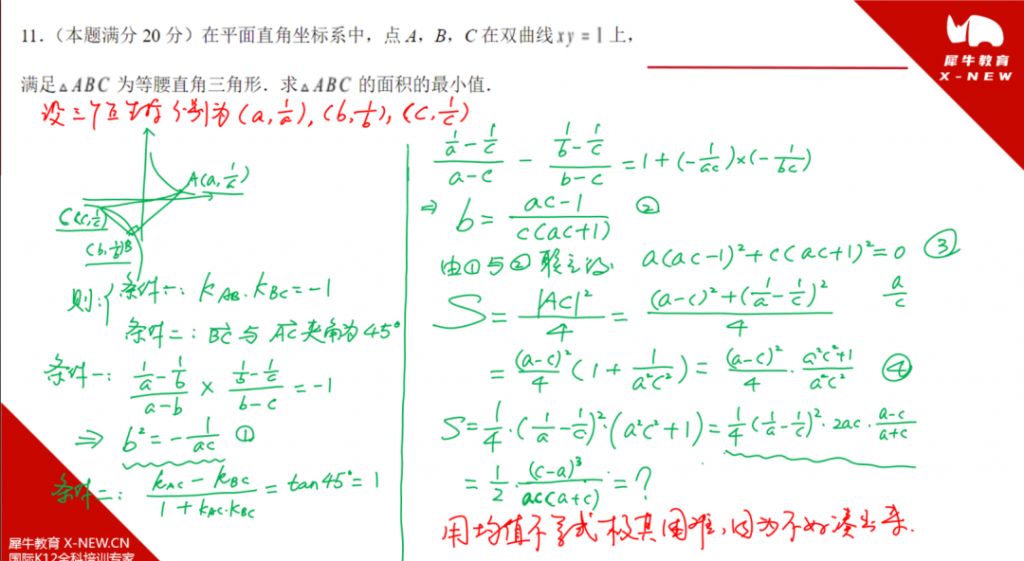 11.（本题满分 20 分）在平面直角坐标系中，点 A，B，C 在双曲线 xy = 1 上，
满足△ABC 为等腰直角三角形. 求△ABC 的面积的最小值.
犀牛教育
X-NEW
设三个互坐标分别为 (a, 1/a), (b, 1/b), (c, 1/c)
A(a, 1/a)
C(c, 1/c)
(b, 1/b)B
则:{条件一: k_AB · k_BC = -1
条件二: BC 与 AC 夹角为 45°
条件一: (1/a - 1/b)/(a-b) × (1/b - 1/c)/(b-c) = -1
⇒ b² = -1/(ac) ①
条件二: (k_AC - k_BC)/(1 + k_AC·k_BC) = tan45° = 1
(1/a - 1/c)/(a-c) - (1/b - 1/c)/(b-c) = 1 + (-1/(ac)) × (-1/(bc))
⇒ b = (ac-1)/(c(ac+1)) ②
由①与②联立得 a(ac-1)² + c(ac+1)² = 0 ③
S = |AC|²/4 = ((a-c)² + (1/a - 1/c)²)/4 a/c
= (a-c)²/4 (1 + 1/(a²c²)) = (a-c)²/4 · (a²c²+1)/(a²c²) ④
S = 1/4 · (1/a - 1/c)² · (a²c²+1) = 1/4 (1/a - 1/c)² · 2ac · (a-c)/(a+c)
= 1/2 · (c-a)³/(ac(a+c)) = ?
用均值不等式极其困难, 因为不好凑出来.
犀牛教育 X-NEW.CN
国际K12全科培训专家